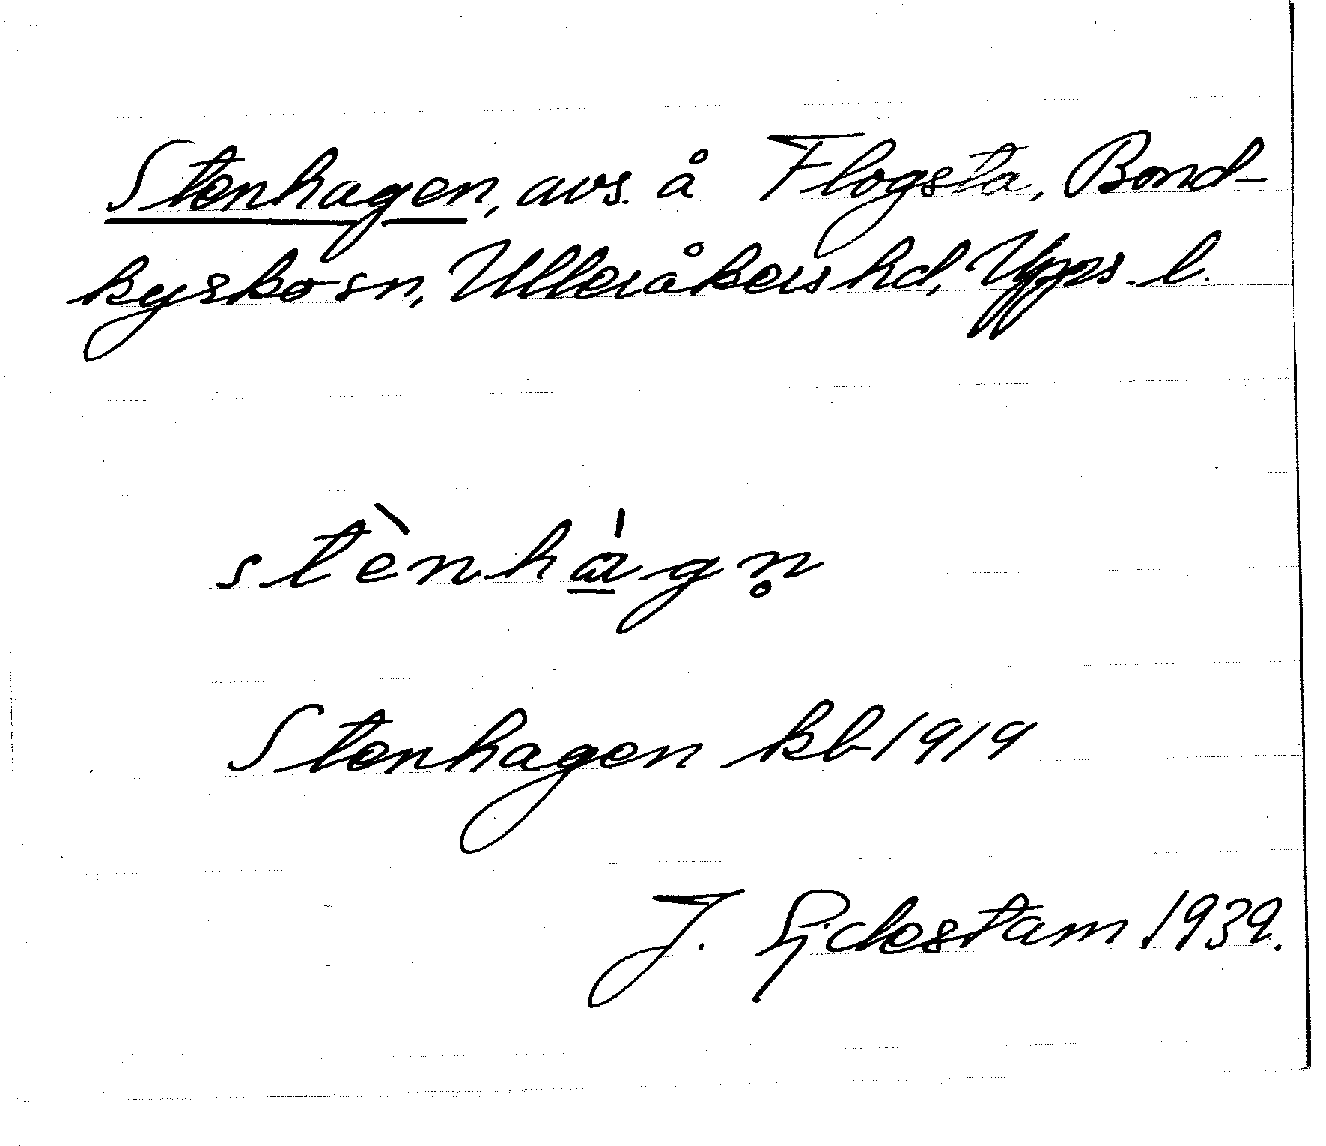 Stenhagen, avs. å Flogsta, Bond-
kyrko sn, Ulleråkers hd, Upps. l.
stènhág̣n̥
Stenhagen kb 1919
J. Sjdestam 1939.